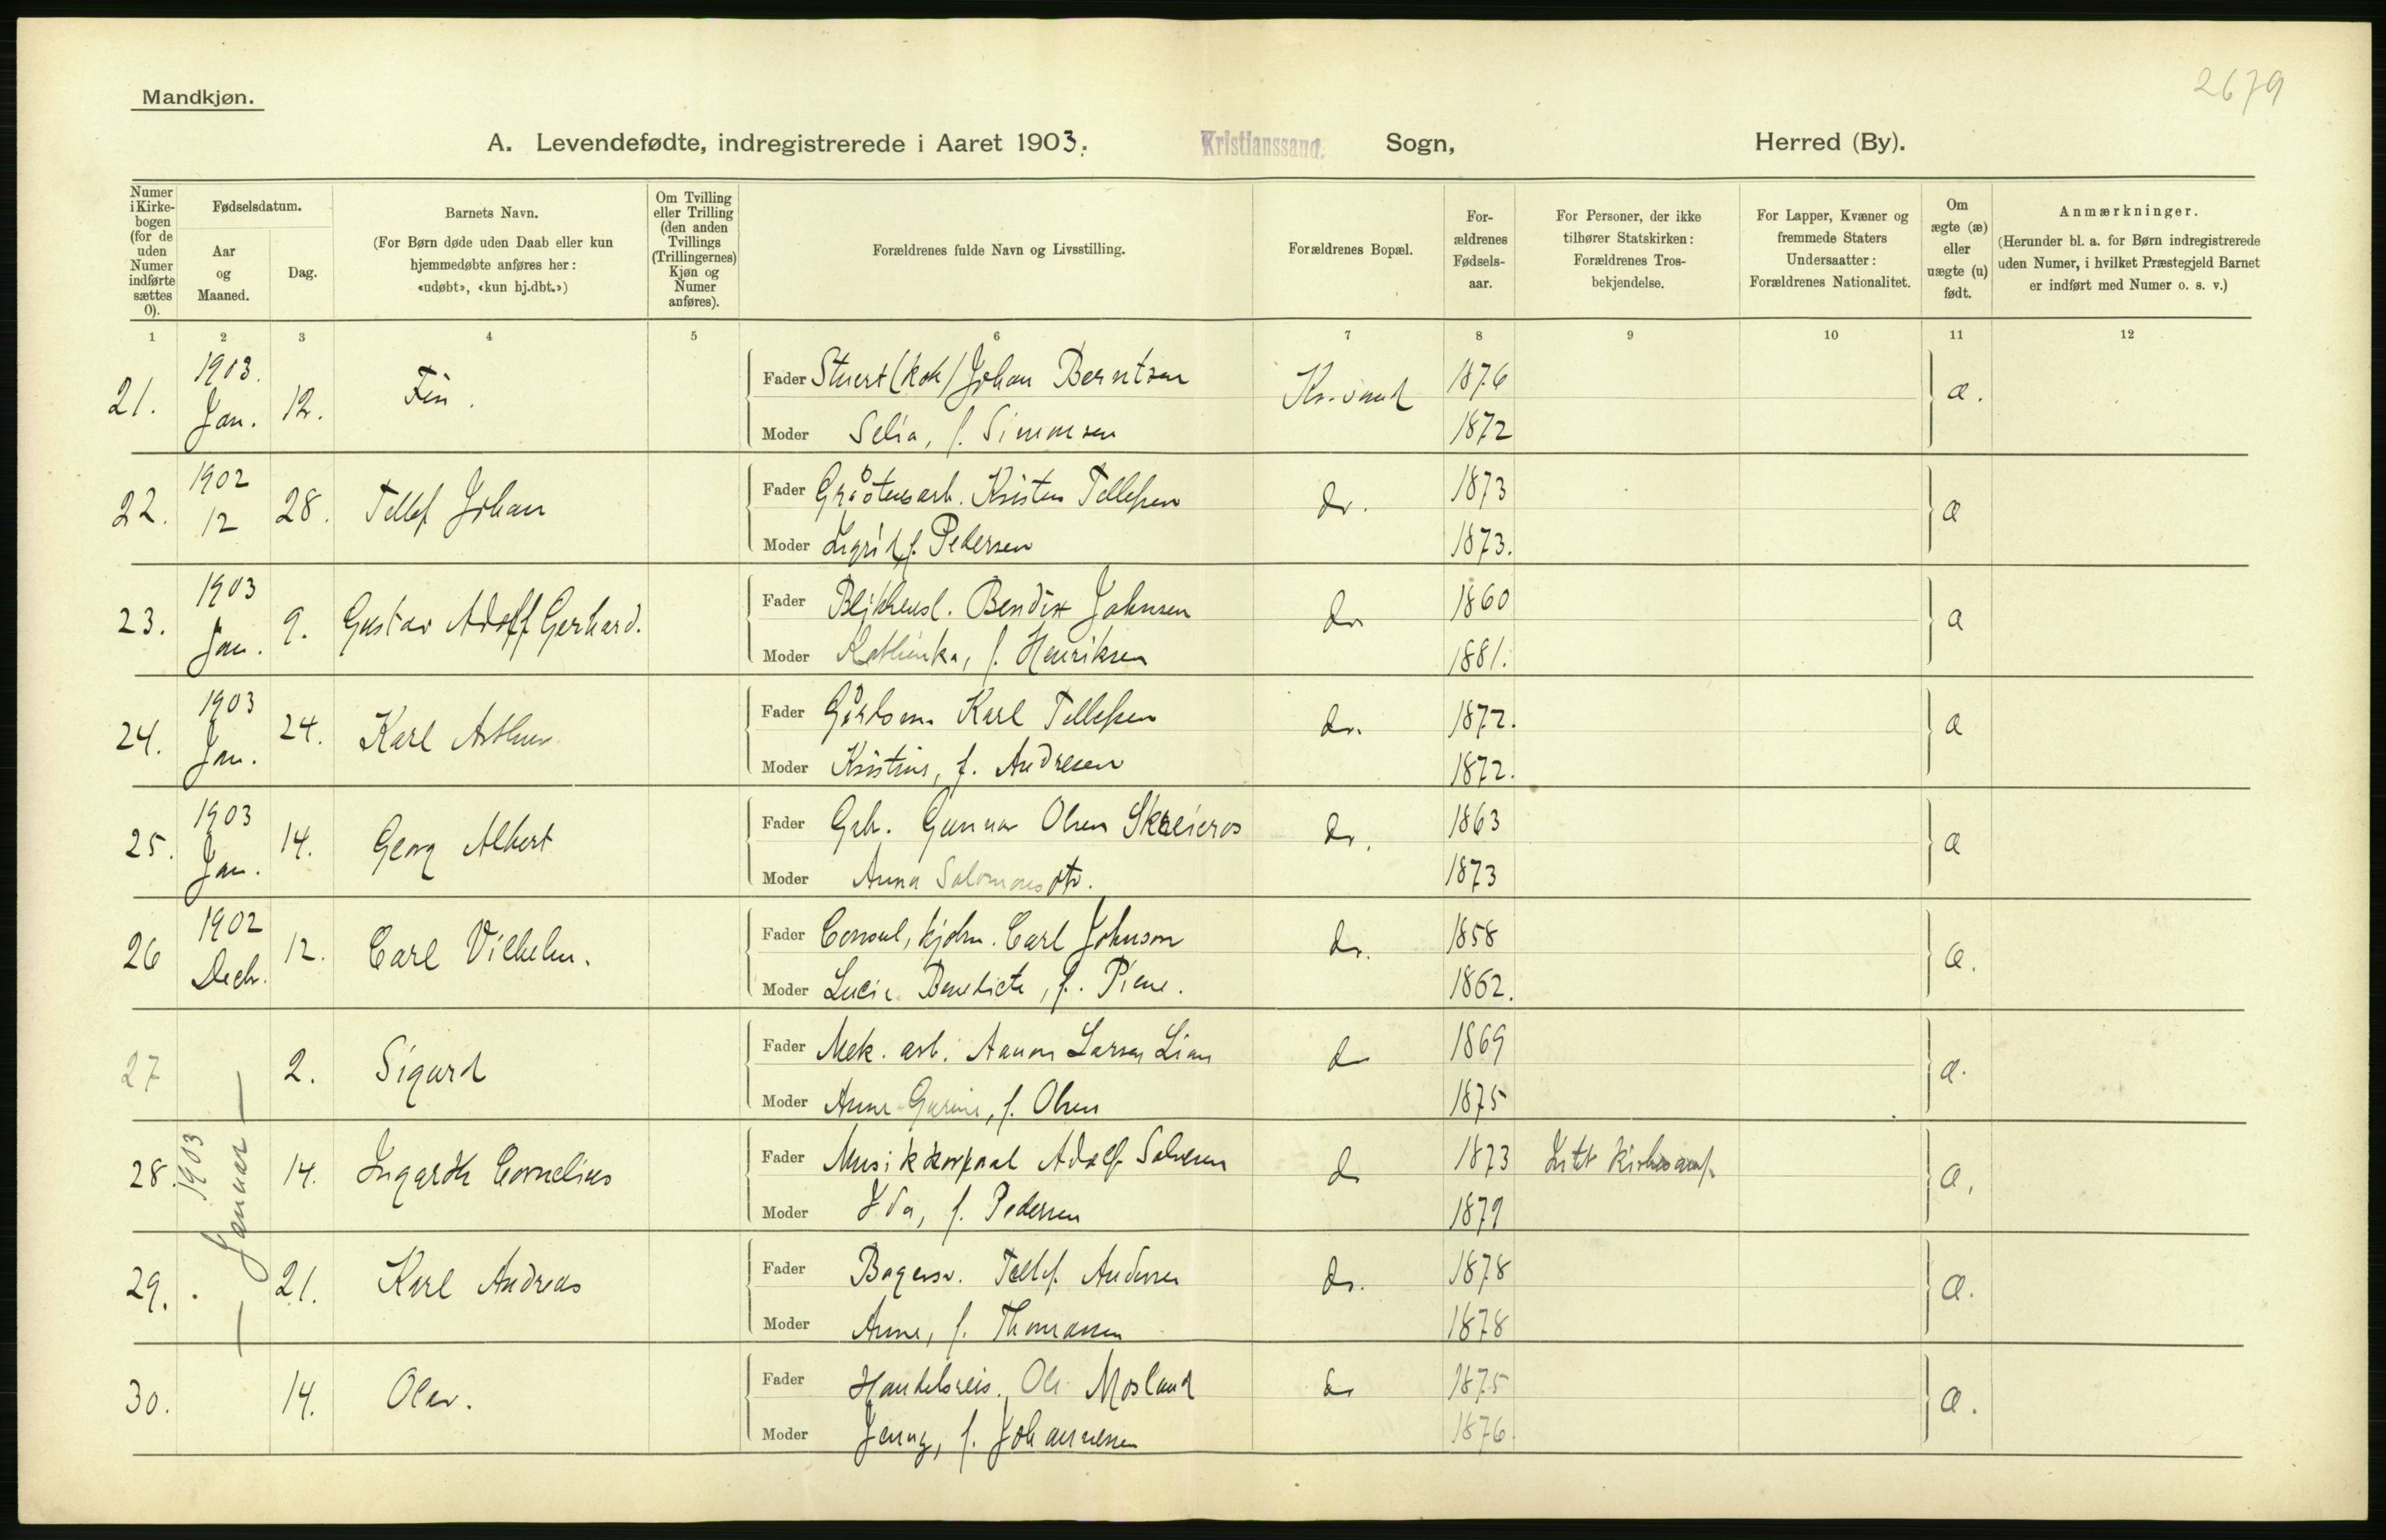 2679
Mandkjøn.
A. Levendefødte, indregistrerede i Aaret 1903. Kristianssand. Sogn, Herred (By).
Numer i Kirkebogen (for de uden Numer indførte sættes 0).
Fødselsdatum.
Aar og Maaned.
Dag.
Barnets Navn.
(For Børn døde uden Daab eller kun hjemmedøbte anføres her: «udøbt», «kun hj.dbt.»)
Om Tvilling eller Trilling (den anden Tvillings (Trillingernes) Kjøn og Numer anføres).
Forældrenes fulde Navn og Livsstilling.
Forældrenes Bopæl.
Forældrenes Fødselsaar.
For Personer, der ikke tilhører Statskirken: Forældrenes Trosbekjendelse.
For Lapper, Kvæner og fremmede Staters Undersaatter: Forældrenes Nationalitet.
Om ægte (æ) eller uægte (u) født.
Anmærkninger.
(Herunder bl. a. for Børn indregistrerede uden Numer, i hvilket Præstegjeld Barnet er indført med Numer o. s. v.)
1 2 3 4 5 6 7 8 9 10 11 12
21. 1903. Jan. 12. Fin. Fader Stuert (kok) Johan Berntsen Kr.sand 1876 æ.
Moder Selia, f. Simonsen 1872
22. 1902 12 28. Tellef Johan Fader Gråstensarb. Kristen Tellefsen do. 1873 æ
Moder Ingrid f. Pedersen 1873.
23. 1903 Jan. 9. Gustav Adolf Gerhard. Fader Bendix Johnsen do 1860 æ
Moder Kathinka, f. Henriksen 1881.
24. 1903 Jan. 24. Karl Arthur Fader Karl Tellefsen do. 1872. æ
Moder Kristine, f. Andresen 1872.
25. 1903 Jan. 14. Georg Albert Fader Gunnar Olsen Skreieros do. 1863 æ
Moder Anna Salomonsdtr. 1873
26 1902 Decbr. 12. Carl Vilhelm. Fader Consul, kjøbm. Carl Johnson do. 1858 æ.
Moder Lucie Benedicte, f. Piene. 1862.
27 1903 Januar 2. Sigurd Fader Mek. arb. Aanon Larsen Lian do 1869 æ.
Moder Anne Gurine, f. Olsen 1875
28. 14. Ingardh Cornelius Fader Musikkorporal Adolf Salvesen do 1873 æ.
Moder Ida, f. Pedersen 1879
29. 21. Karl Andreas Fader Bagersv. Tellef Andersen do. 1878 æ.
Moder Anne, f. Thomassen 1878
30. 14. Olav. Fader Handelsreis. Ole Mosland do 1875 æ.
Moder Jenny, f. Johannessen 1876.